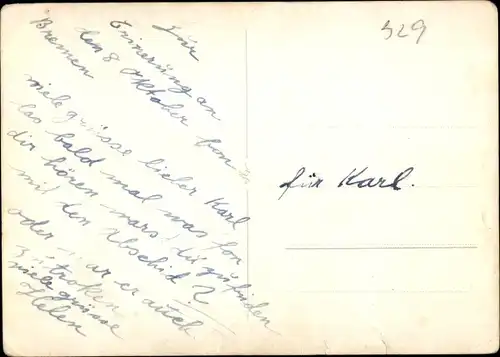 329
für
Erinerung an
den 8 Oktober
Bremen
viele grüsse lieber Karl
las bald mal was fon
dir hören wars du zufriden
mit den Abschid
oder war er auch
zu troken
viele grüsse
Helen
für Karl.